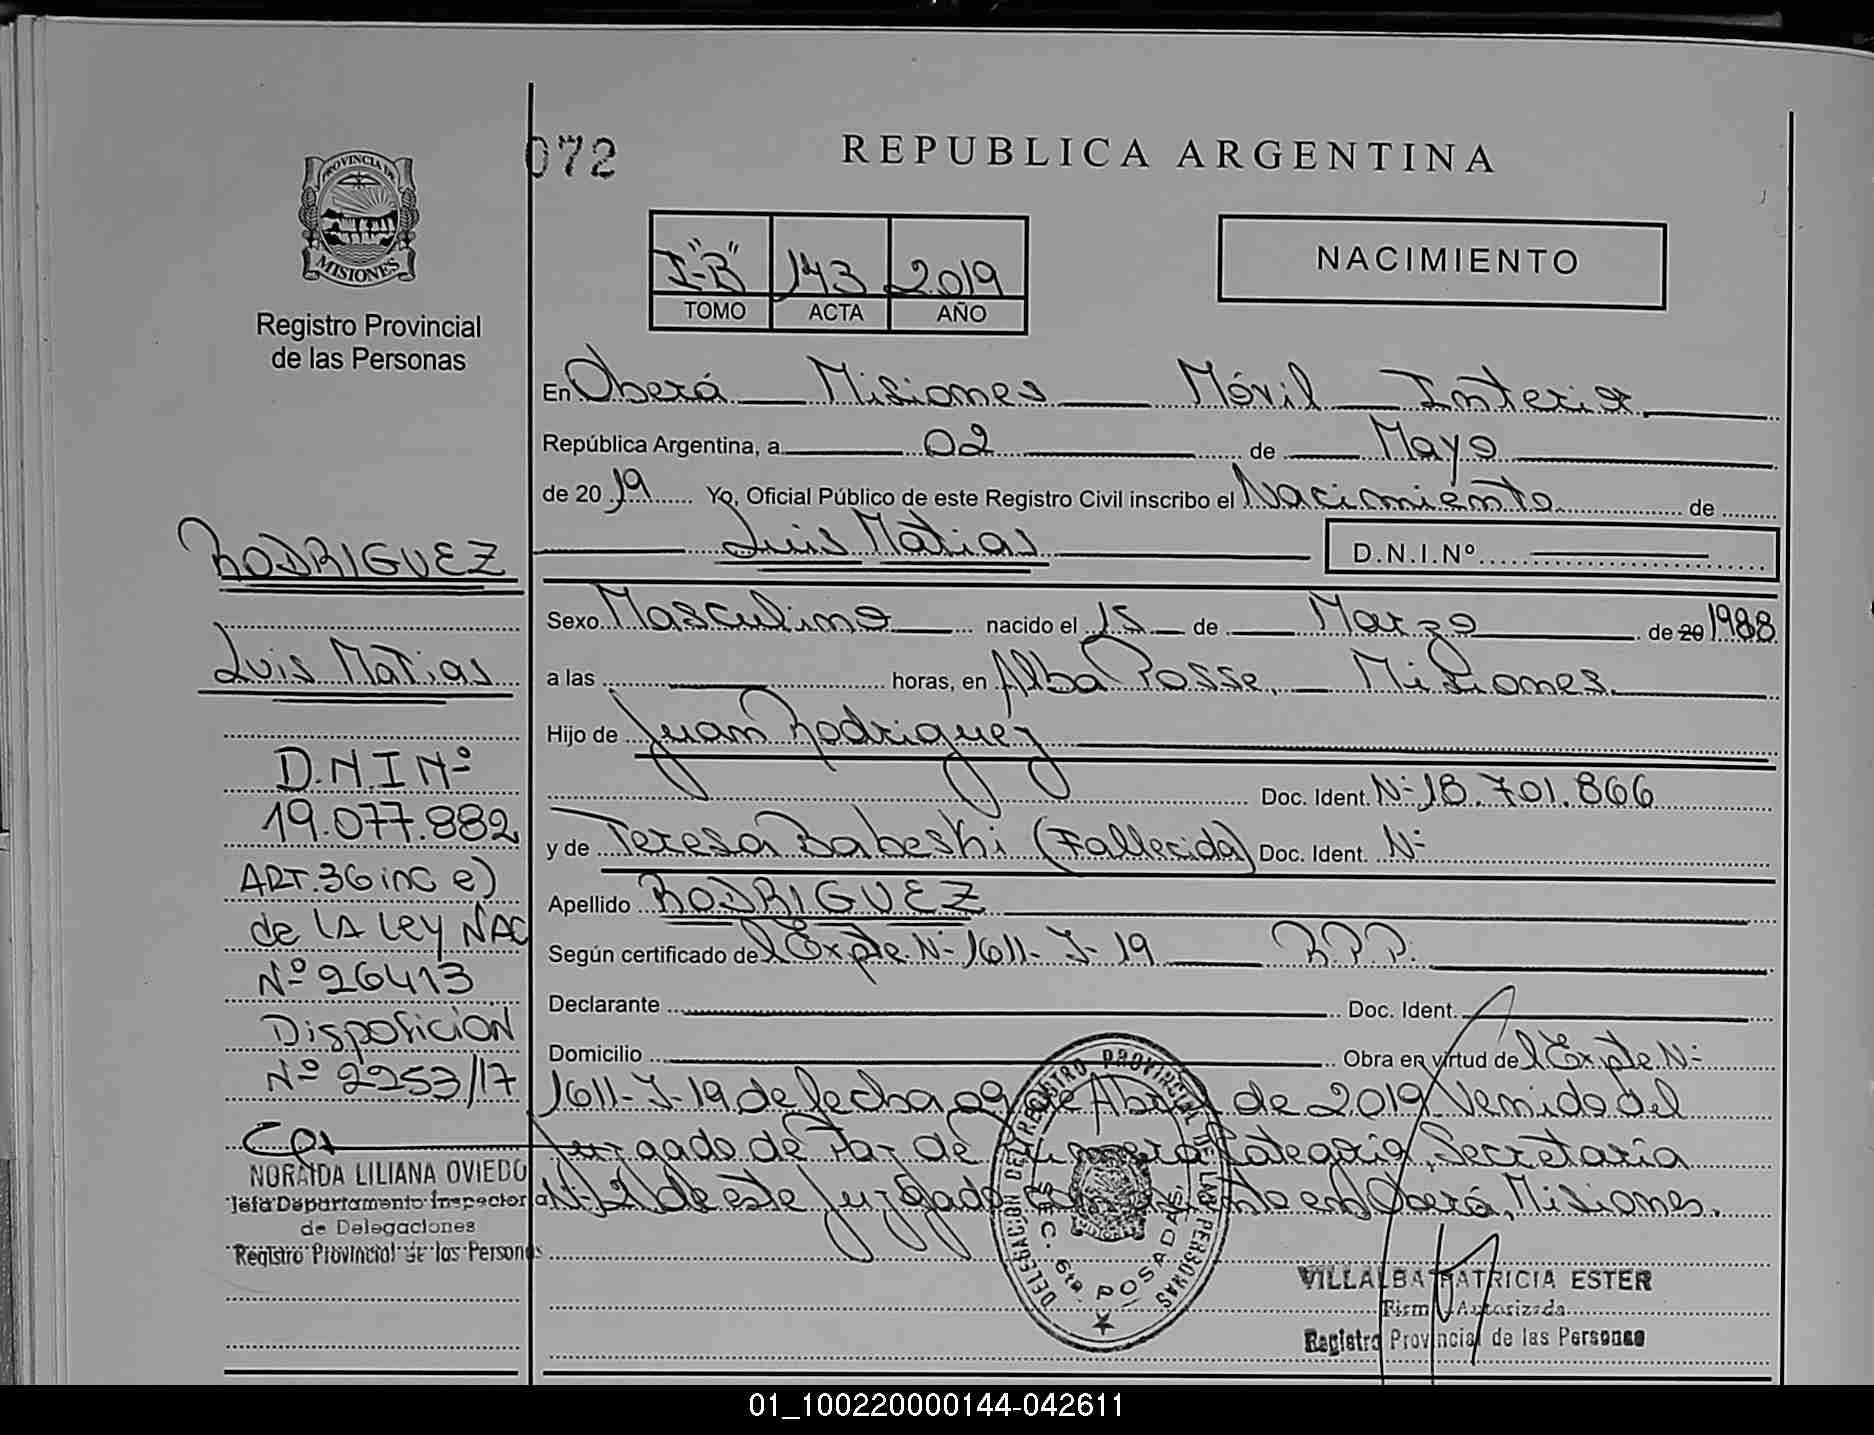 072
REPUBLICA ARGENTINA
PROVINCIA DE
MISIONES
Registro Provincial
de las Personas
I-"B" 143 2019
TOMO ACTA AÑO
NACIMIENTO
En Oberá Misiones Móvil Interior
República Argentina, a 02 de Mayo
de 20 19 Yo, Oficial Público de este Registro Civil inscribo el Nacimiento de
Luis Matias D.N.I.Nº
Sexo Masculino nacido el 15 de Marzo de 20 1988
a las horas, en Alba Posse, Misiones.
Hijo de Juan Rodriguez
Doc. Ident. Nº 18.701.866
y de Teresa Babeski (Fallecida) Doc. Ident. Nº
Apellido RODRIGUEZ
Según certificado del Expte. Nº 1611-J-19 R.P.P.
Declarante Doc. Ident.
Domicilio Obra en virtud del Expte Nº
1611-J-19 de fecha 09 de Abril de 2019 Venido del
Juzgado de Paz de Primera Categoria, Secretaria
Nº 2 de este Juzgado en Oberá, Misiones.
RODRIGUEZ
Luis Matias
D.N.I Nº
19.077.882
ART. 36 inc e)
de LA Ley NAC
Nº 26413
Disposicion
Nº 2253/17
NORAIDA LILIANA OVIEDO
Jefa Departamento Inspectoria
de Delegaciones
Registro Provincial de las Personas
DELEGACION DEL REGISTRO PROVINCIAL DE LAS PERSONAS
SEC. 6ta. POSADAS
MISIONES
VILLALBA PATRICIA ESTER
Firma Autorizada
Registro Provincial de las Personas
01_100220000144-042611